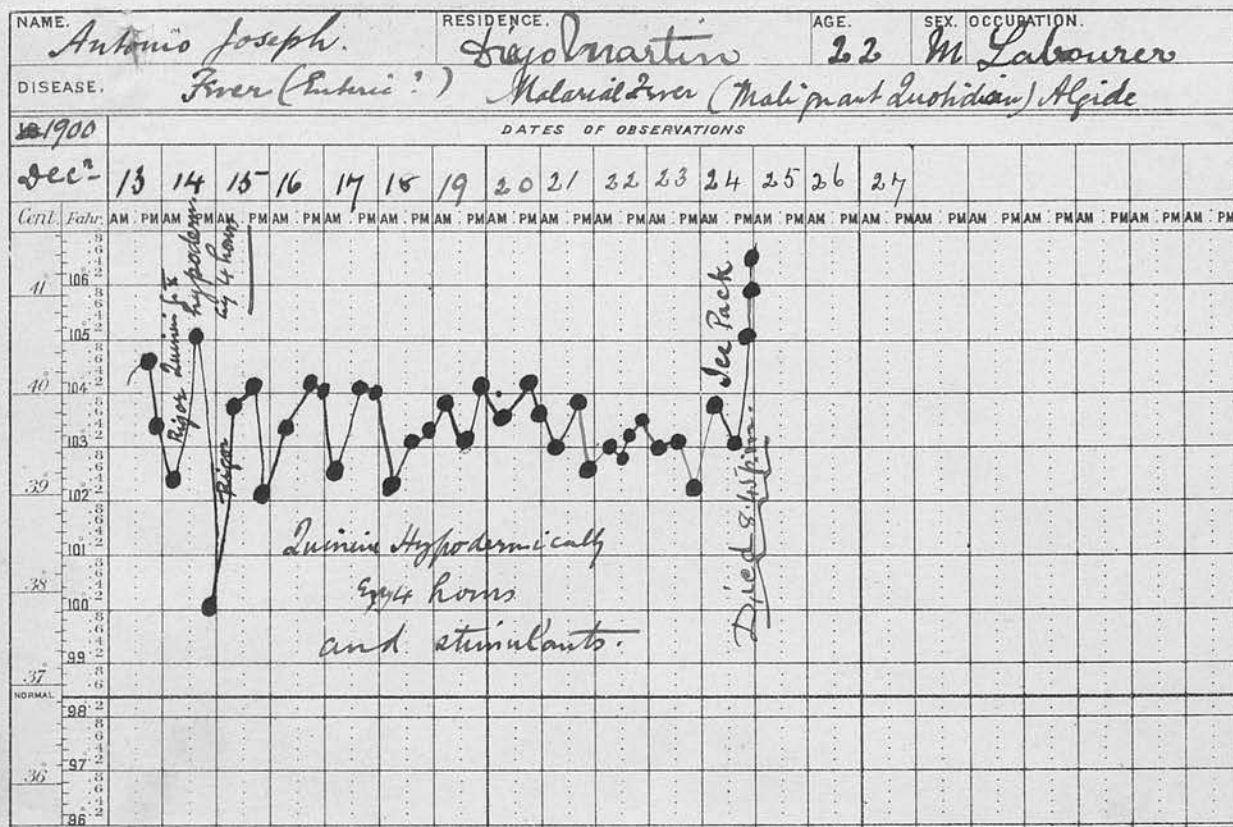 NAME. RESIDENCE. AGE. SEX. OCCUPATION.
Antonio Joseph. Diego Martin 22 M Labourer
DISEASE. Fever (Enteric?) Malarial Fever (Malignant Quotidian) Algide
1900 DATES OF OBSERVATIONS
Decr 13 14 15 16 17 18 19 20 21 22 23 24 25 26 27
Cent. Fahr. AM PM AM PM AM PM AM PM AM PM AM PM AM PM AM PM AM PM AM PM AM PM AM PM AM PM AM PM AM PM AM PM AM PM AM PM AM PM AM PM AM PM
106°
41°
105°
40° 104°
103°
39° 102°
101°
38° 100°
99
37°
NORMAL
98
97
36°
96°
Rigor Quinine gr X
hypoderm
by 4 hours
Rigor
Quinine Hypodermically
Evy 4 hours
and stimulants.
Ice Pack
Died 8.45 p.m.